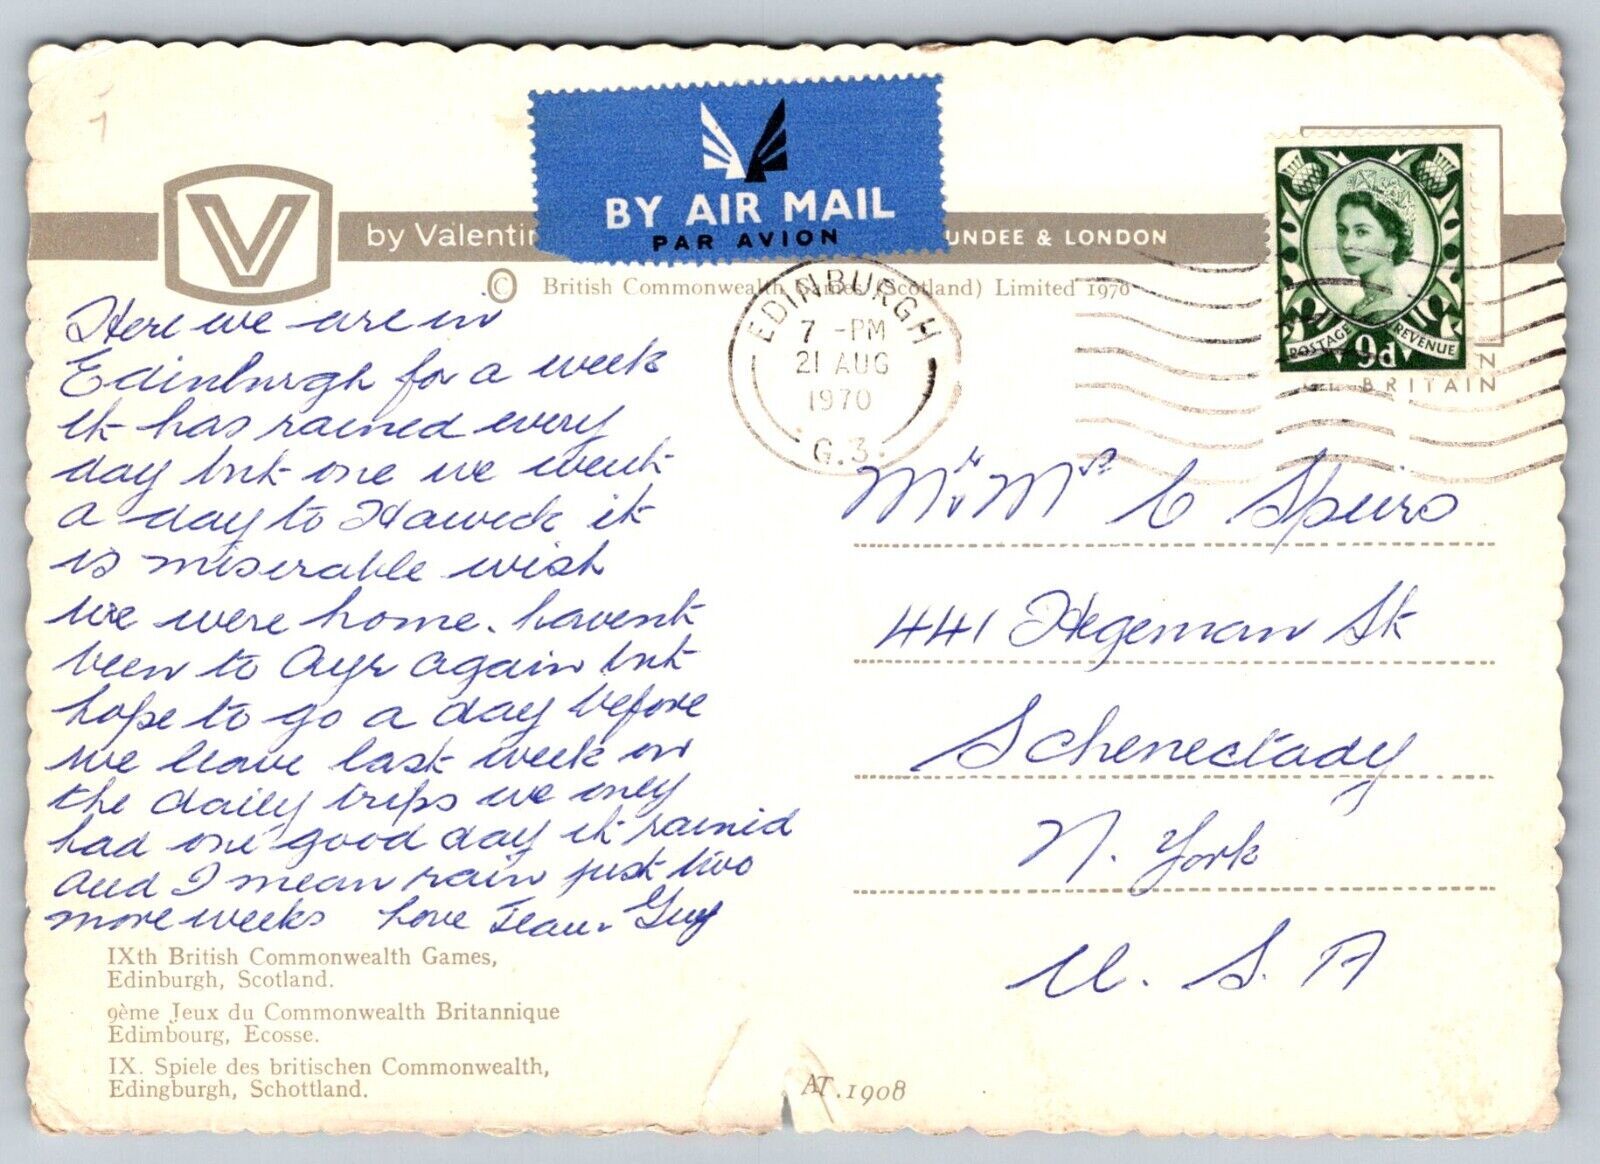 BY AIR MAIL
PAR AVION
V
by Valentin
UNDEE & LONDON
© British Commonwealth Games (Scotland) Limited 1970
EDINBURGH
7 -PM
21 AUG
1970
G.3.
POSTAGE 9d REVENUE
BRITAIN
Here we are in
Edinburgh for a week
it has rained every
day but one we went
a day to Hawick it
is miserable wish
we were home. havent
been to Ayr again but
hope to go a day before
we leave last week on
the daily trips we only
had one good day it rained
and I mean rain just two
more weeks Love Jean. Guy
Mr & Mrs C Speirs
441 Hegeman St
Schenectady
N. York
U. S. A
IXth British Commonwealth Games,
Edinburgh, Scotland.
9ème Jeux du Commonwealth Britannique
Edimbourg, Ecosse.
IX. Spiele des britischen Commonwealth,
Edingburgh, Schottland.
AT.1908